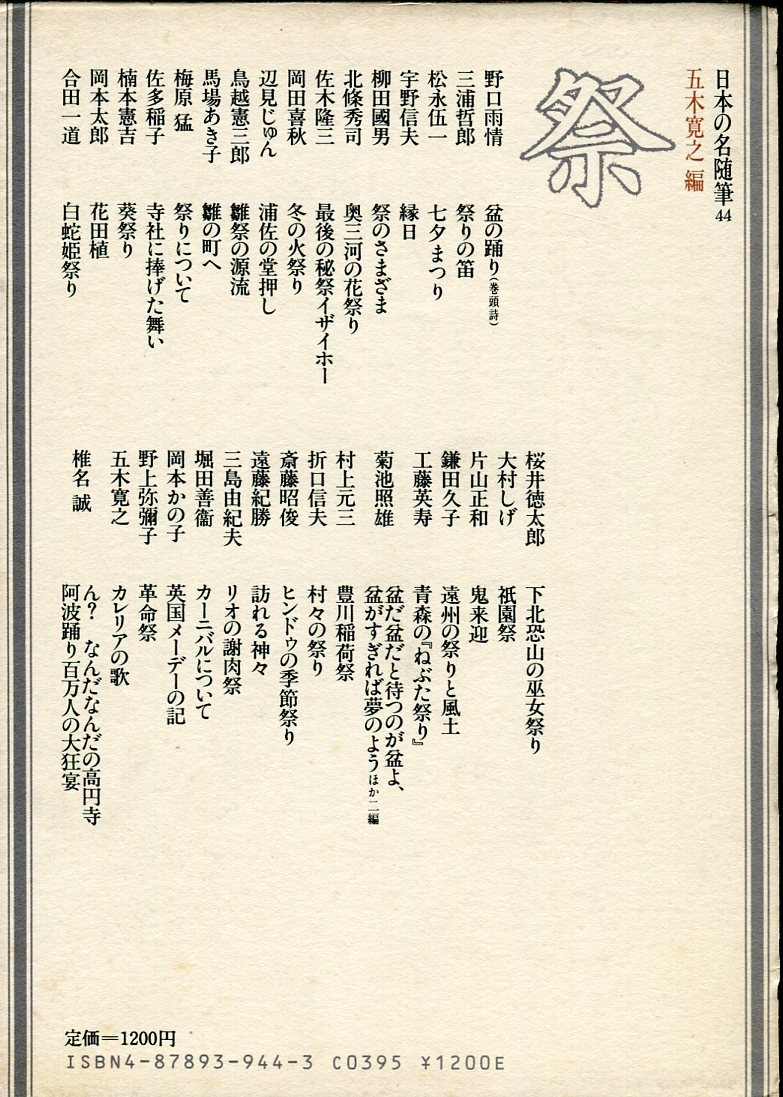 日本の名随筆44
五木寛之 編
祭
野口雨情 盆の踊り(巻頭詩)
三浦哲郎 祭りの笛
松永伍一 七夕まつり
宇野信夫 縁日
柳田國男 祭のさまざま
北條秀司 奥三河の花祭り
佐木隆三 最後の秘祭イザイホー
岡田喜秋 冬の火祭り
辺見じゅん 浦佐の堂押し
鳥越憲三郎 雛祭の源流
馬場あき子 雛の町へ
梅原 猛 祭りについて
佐多稲子 寺社に捧げた舞い
楠本憲吉 葵祭り
岡本太郎 花田植
合田一道 白蛇姫祭り
桜井徳太郎 下北恐山の巫女祭り
大村しげ 祇園祭
片山正和 鬼来迎
鎌田久子 遠州の祭りと風土
工藤英寿 青森の『ねぶた祭り』
菊池照雄 盆だ盆だと待つのが盆よ、
盆がすぎれば夢のようほか二編
村上元三 豊川稲荷祭
折口信夫 村々の祭り
斎藤昭俊 ヒンドゥの季節祭り
遠藤紀勝 訪れる神々
三島由紀夫 リオの謝肉祭
堀田善衞 カーニバルについて
岡本かの子 英国メーデーの記
野上弥彌子 革命祭
五木寛之 カレリアの歌
椎名 誠 ん? なんだなんだの高円寺
阿波踊り百万人の大狂宴
定価=1200円
ISBN4-87893-944-3 C0395 ¥1200E